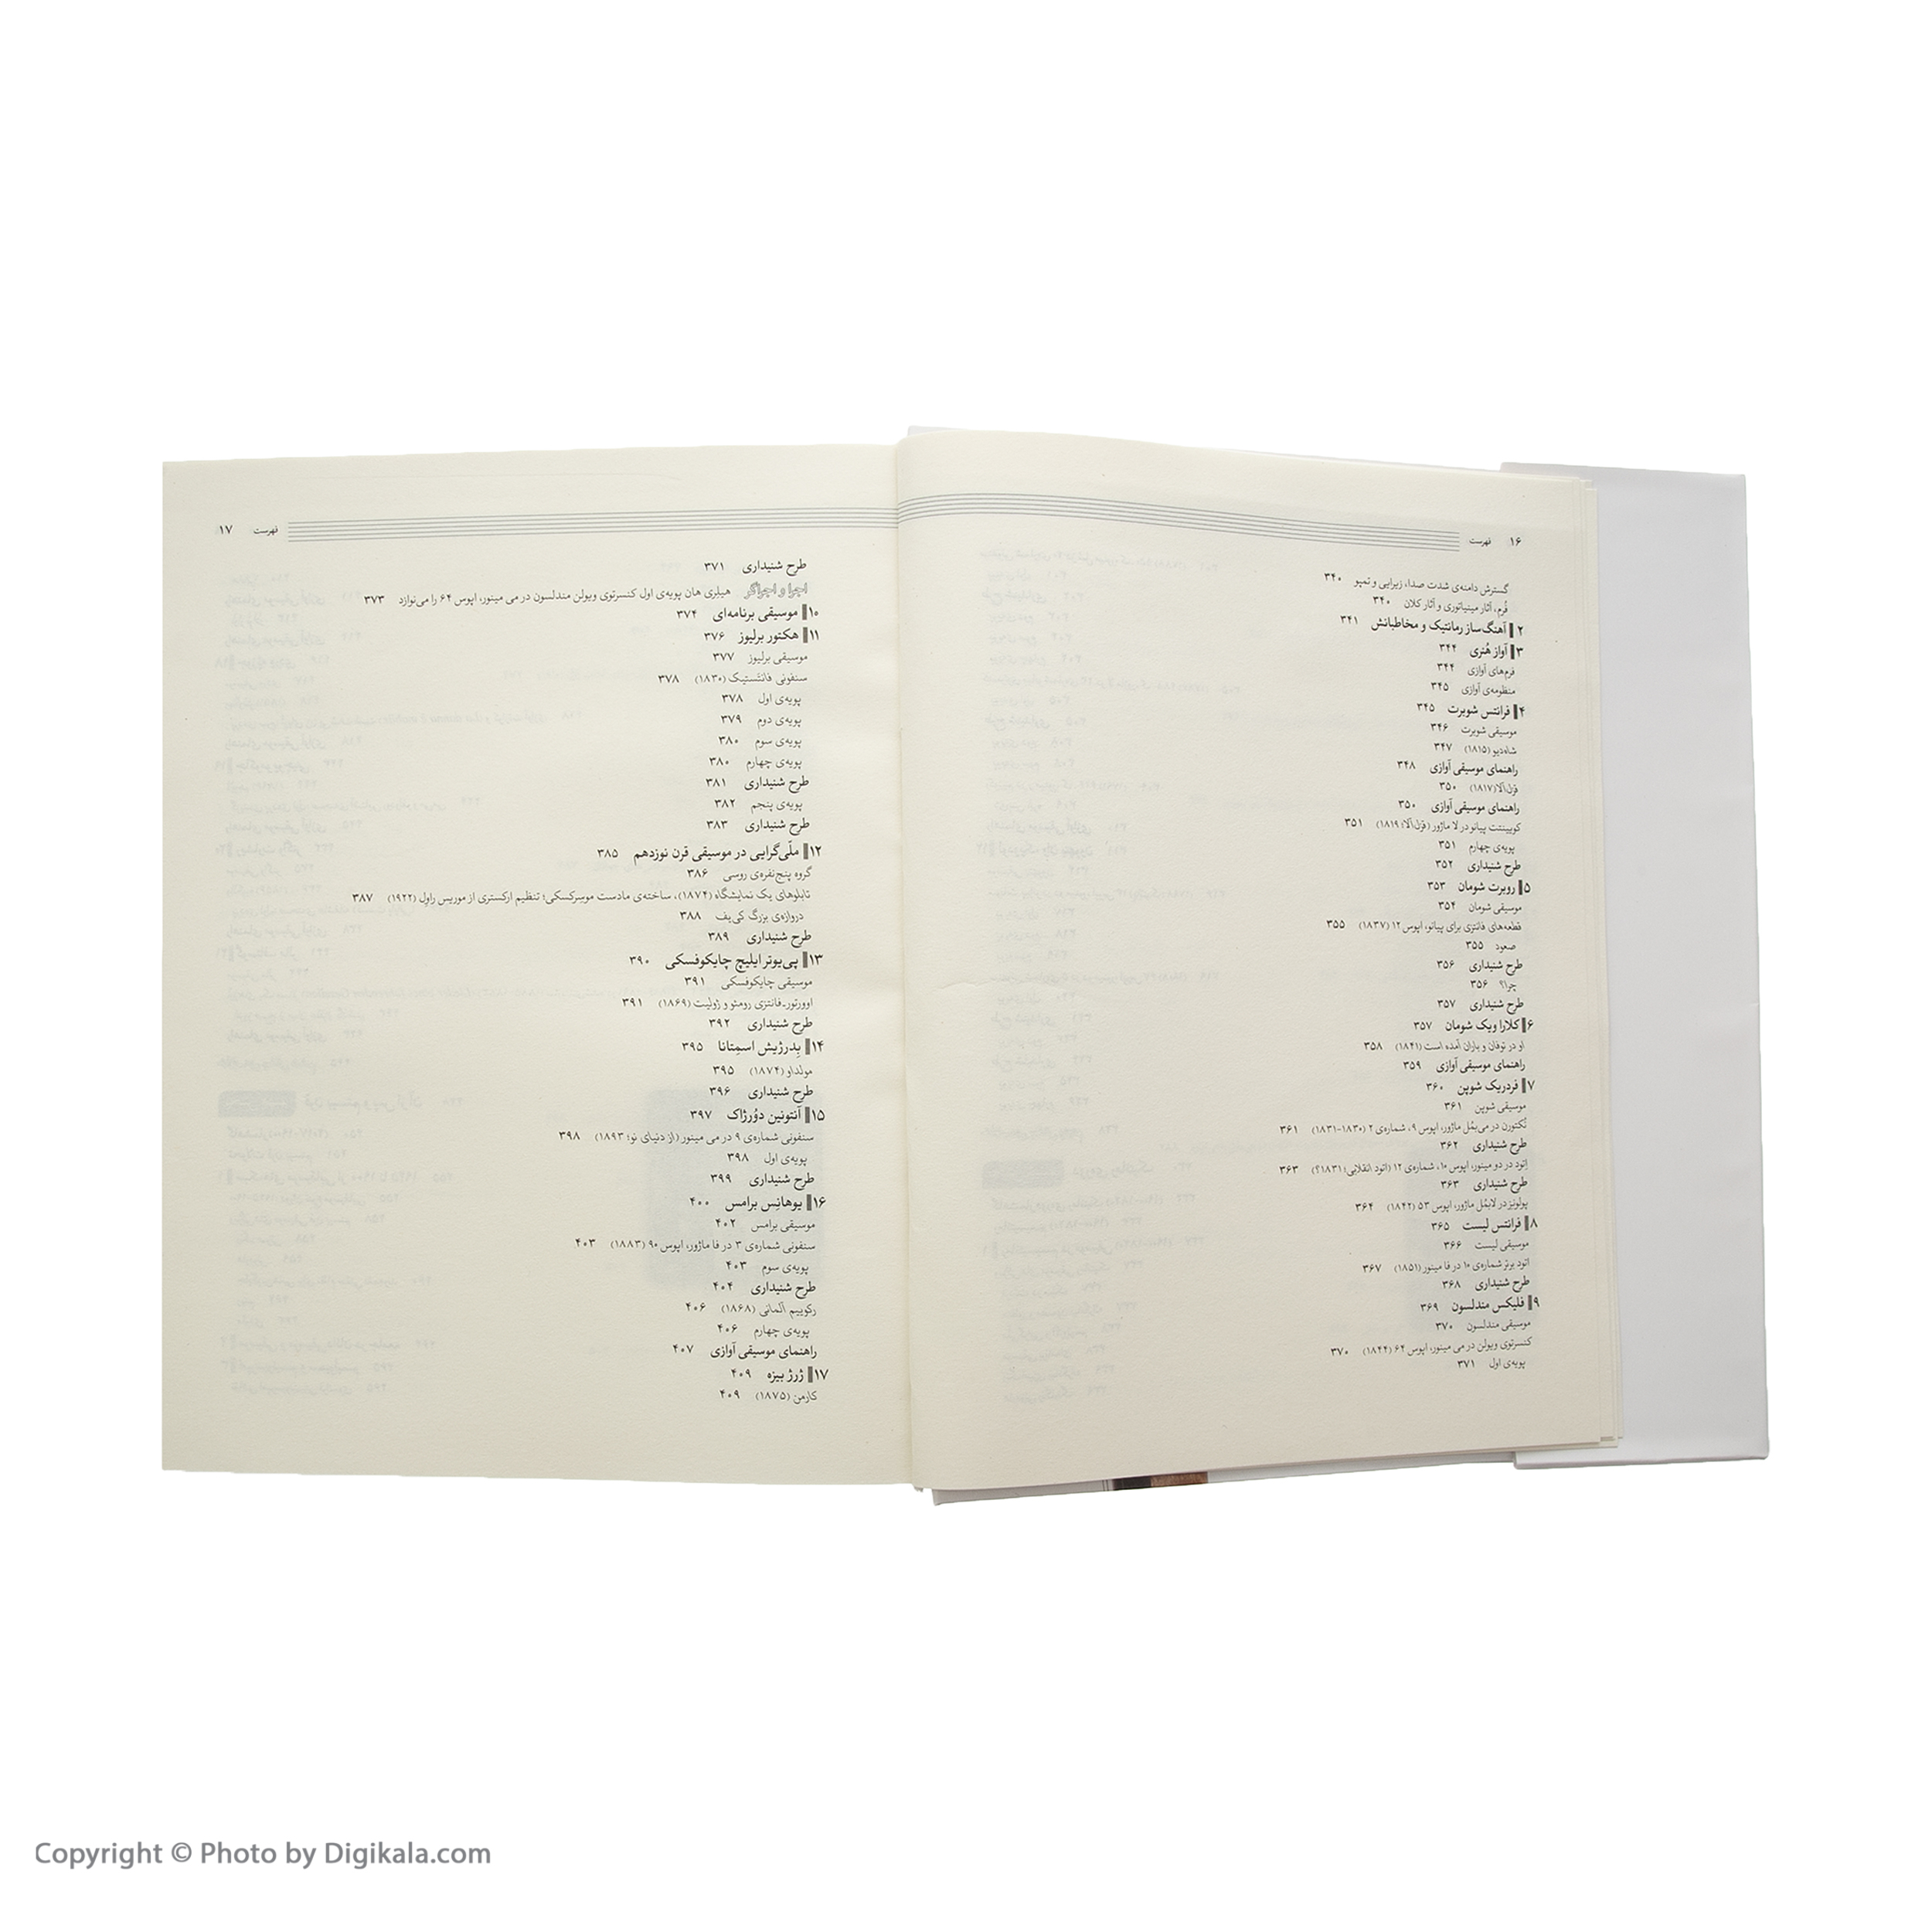 ۱۶ فهرست
گسترش دامنه‌ی شدت صدا، زیرایی و تمپو ۳۴۰
فُرم، آثار مینیاتوری و آثار کلان ۳۴۰
۲ آهنگ‌ساز رمانتیک و مخاطبانش ۳۴۱
۳ آواز هُنری ۳۴۴
فرم‌های آوازی ۳۴۴
منظومه‌ی آوازی ۳۴۵
۴ فرانتس شوبرت ۳۴۵
موسیقی شوبرت ۳۴۶
شاه‌دیو (۱۸۱۵) ۳۴۷
راهنمای موسیقی آوازی ۳۴۸
قزل‌آلا (۱۸۱۷) ۳۵۰
راهنمای موسیقی آوازی ۳۵۰
کویینتت پیانو در لا ماژور (قزل‌آلا؛ ۱۸۱۹) ۳۵۱
پویه‌ی چهارم ۳۵۱
طرح شنیداری ۳۵۲
۵ روبرت شومان ۳۵۳
موسیقی شومان ۳۵۴
قطعه‌های فانتزی برای پیانو، اپوس ۱۲ (۱۸۳۷) ۳۵۵
صعود ۳۵۵
طرح شنیداری ۳۵۶
چرا؟ ۳۵۶
طرح شنیداری ۳۵۷
۶ کلارا ویک شومان ۳۵۷
او در توفان و باران آمده است (۱۸۴۱) ۳۵۸
راهنمای موسیقی آوازی ۳۵۹
۷ فردریک شوپن ۳۶۰
موسیقی شوپن ۳۶۱
نُکتورن در می‌بمُل ماژور، اپوس ۹، شماره‌ی ۲ (۱۸۳۰-۱۸۳۱) ۳۶۱
طرح شنیداری ۳۶۲
اِتود در دو مینور، اپوس ۱۰، شماره‌ی ۱۲ (اتود انقلابی؛ ۱۸۳۱؟) ۳۶۳
طرح شنیداری ۳۶۳
پولونِز در لابمُل ماژور، اپوس ۵۳ (۱۸۴۲) ۳۶۴
۸ فرانتس لیست ۳۶۵
موسیقی لیست ۳۶۶
اتود برتر شماره‌ی ۱۰ در فا مینور (۱۸۵۱) ۳۶۷
طرح شنیداری ۳۶۸
۹ فلیکس مندلسون ۳۶۹
موسیقی مندلسون ۳۷۰
کنسرتوی ویولن در می مینور، اپوس ۶۴ (۱۸۴۴) ۳۷۰
پویه‌ی اول ۳۷۱
فهرست ۱۷
طرح شنیداری ۳۷۱
اجرا و اجراگر هیلری هان پویه‌ی اول کنسرتوی ویولن مندلسون در می مینور، اپوس ۶۴ را می‌نوازد ۳۷۳
۱۰ موسیقی برنامه‌ای ۳۷۴
۱۱ هکتور برلیوز ۳۷۶
موسیقی برلیوز ۳۷۷
سنفونی فانتَستیک (۱۸۳۰) ۳۷۸
پویه‌ی اول ۳۷۸
پویه‌ی دوم ۳۷۹
پویه‌ی سوم ۳۸۰
پویه‌ی چهارم ۳۸۰
طرح شنیداری ۳۸۱
پویه‌ی پنجم ۳۸۲
طرح شنیداری ۳۸۳
۱۲ ملّی‌گرایی در موسیقی قرن نوزدهم ۳۸۵
گروه پنج‌نفره‌ی روسی ۳۸۶
تابلوهای یک نمایشگاه (۱۸۷۴)، ساخته‌ی مادست موسرکسکی؛ تنظیم ارکستری از موریس راوِل (۱۹۲۲) ۳۸۷
دروازه‌ی بزرگ کی‌یف ۳۸۸
طرح شنیداری ۳۸۹
۱۳ پی‌یوتر ایلیچ چایکوفسکی ۳۹۰
موسیقی چایکوفسکی ۳۹۱
اوورتور-فانتزی رومئو و ژولیت (۱۸۶۹) ۳۹۱
طرح شنیداری ۳۹۲
۱۴ بِدرژیش اسمِتانا ۳۹۵
مولداو (۱۸۷۴) ۳۹۵
طرح شنیداری ۳۹۶
۱۵ آنتونین دوُرژاک ۳۹۷
سنفونی شماره‌ی ۹ در می مینور (از دنیای نو؛ ۱۸۹۳) ۳۹۸
پویه‌ی اول ۳۹۸
طرح شنیداری ۳۹۹
۱۶ یوهانِس برامس ۴۰۰
موسیقی برامس ۴۰۲
سنفونی شماره‌ی ۳ در فا ماژور، اپوس ۹۰ (۱۸۸۳) ۴۰۳
پویه‌ی سوم ۴۰۳
طرح شنیداری ۴۰۴
رکوییم آلمانی (۱۸۶۸) ۴۰۶
پویه‌ی چهارم ۴۰۶
راهنمای موسیقی آوازی ۴۰۷
۱۷ ژرژ بیزه ۴۰۹
کارمن (۱۸۷۵) ۴۰۹
Copyright © Photo by Digikala.com